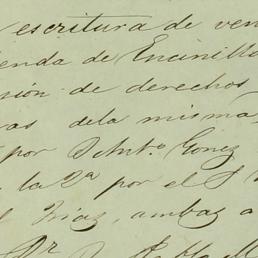 escritura de ven
ienda de Encinillas
sión de derechos
as dela misma
por D Anto. Gonez
la 2ª por el S
Diaz, ambas a
Dr